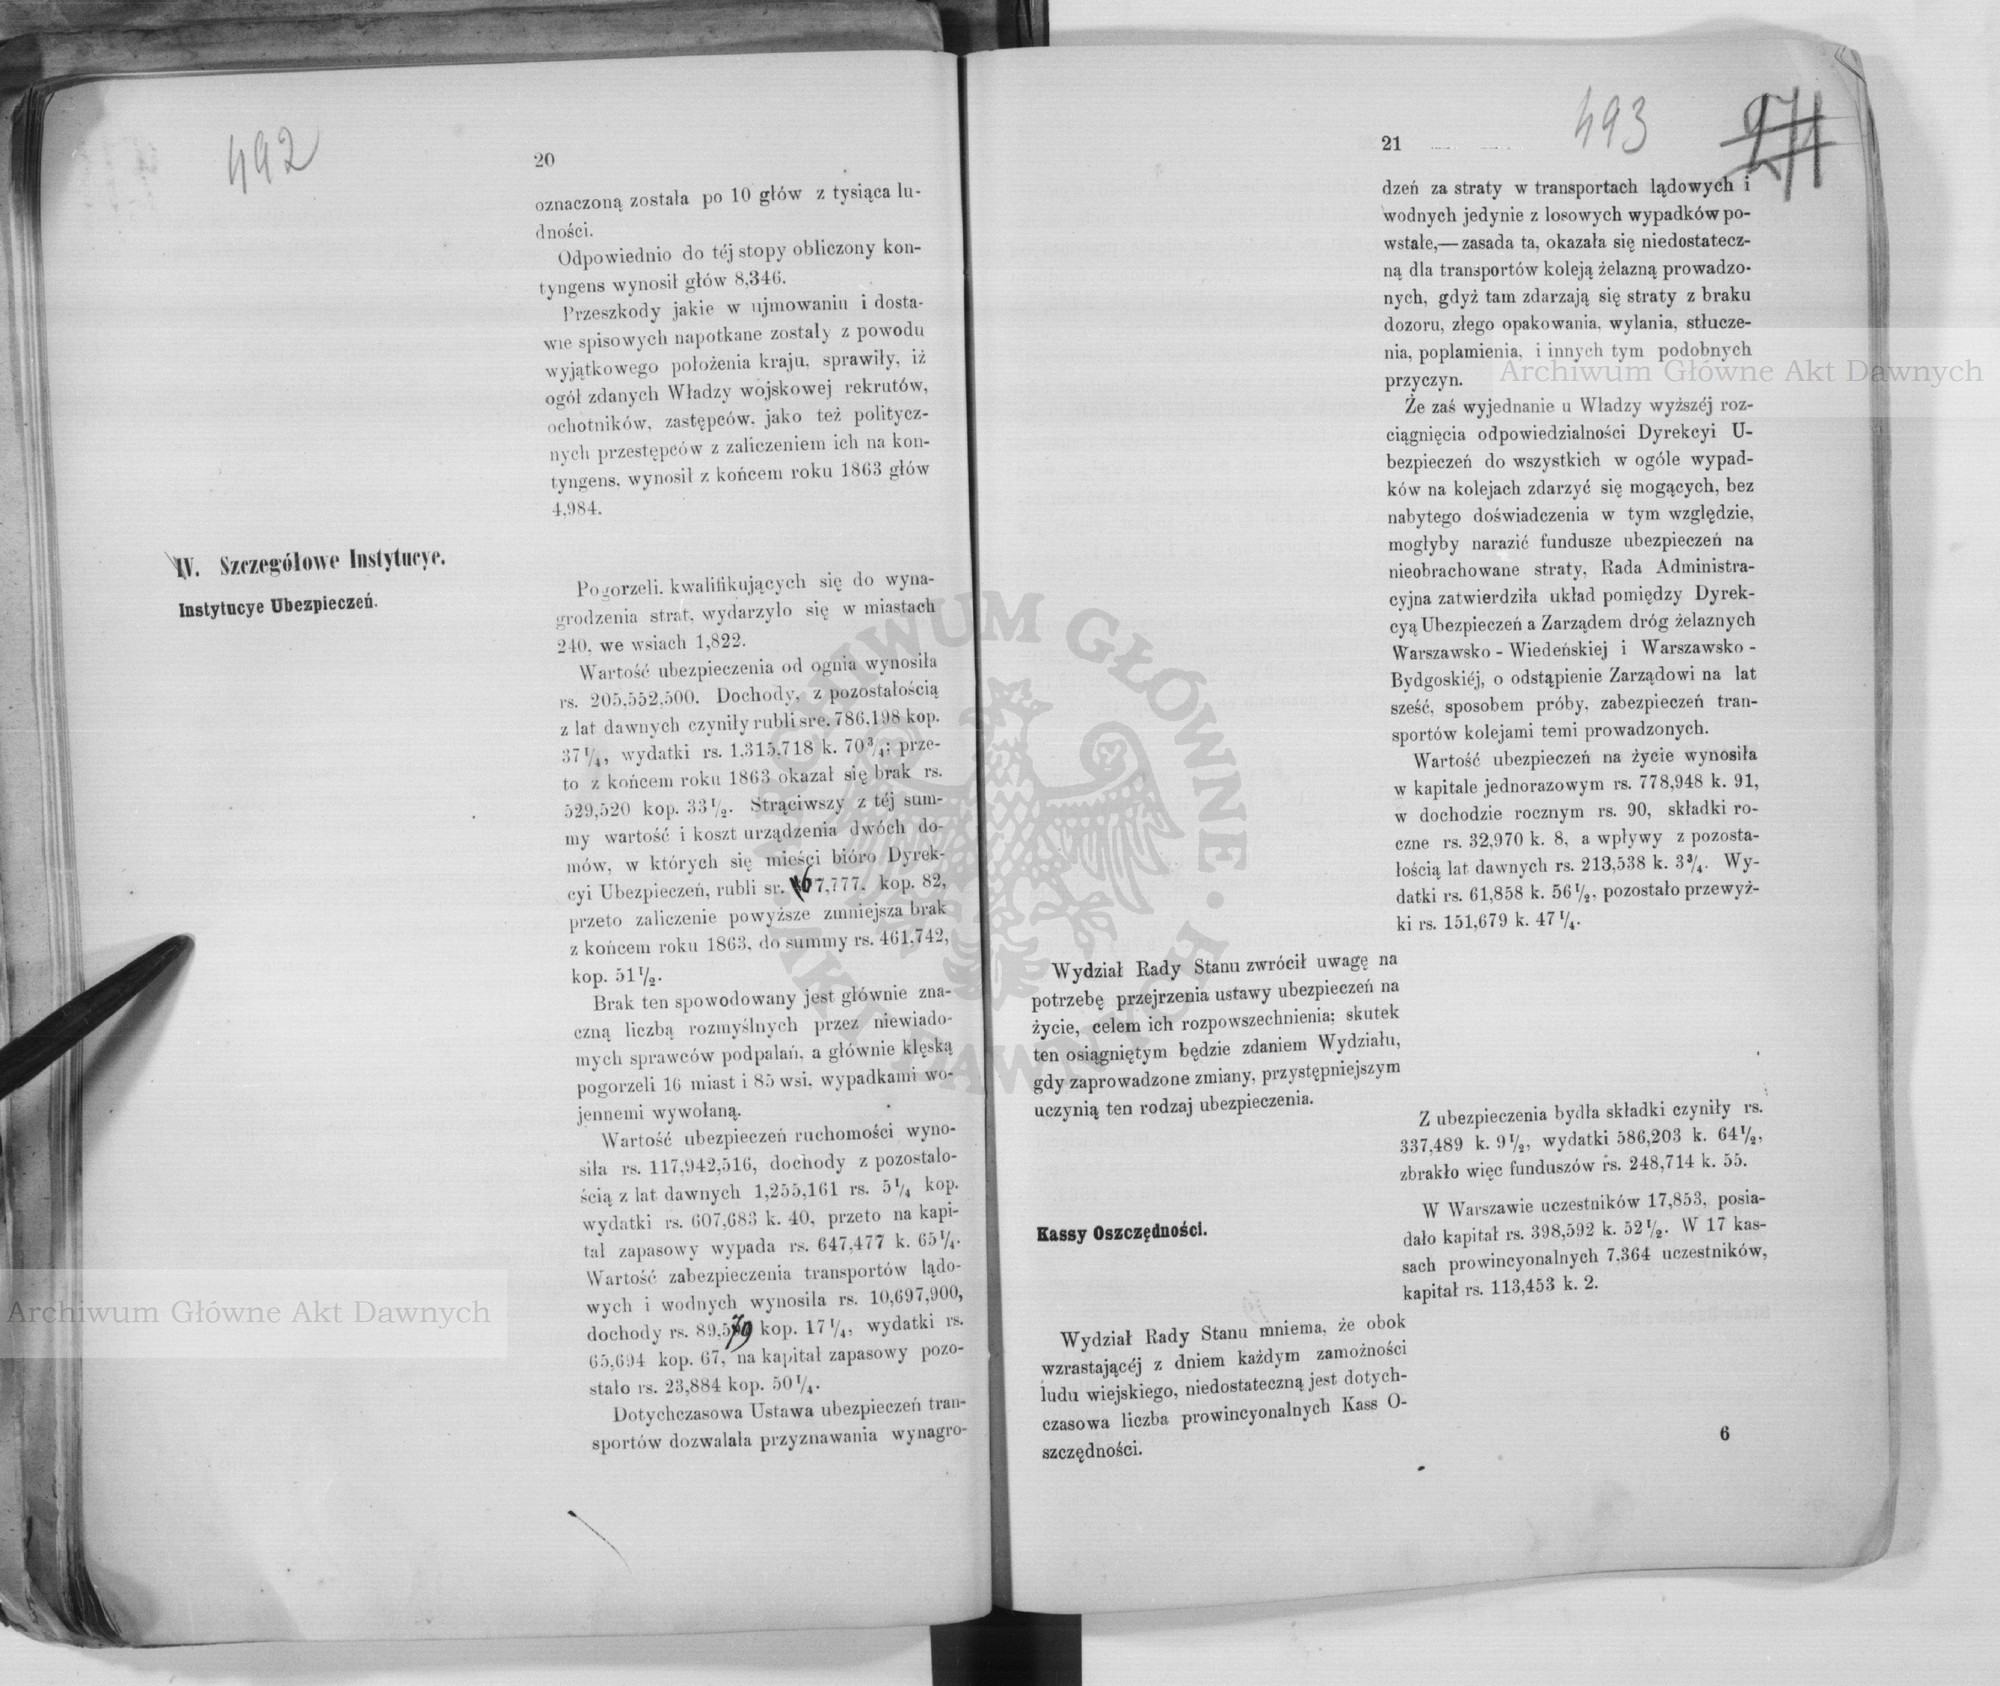 492
20
oznaczoną została po 10 głów z tysiąca lu-
dności.
Odpowiednio do téj stopy obliczony kon-
tyngens wynosił głów 8,346.
Przeszkody jakie w ujmowaniu i dosta-
wie spisowych napotkane zostały z powodu
wyjątkowego położenia kraju, sprawiły, iż
ogół zdanych Władzy wojskowej rekrutów,
ochotników, zastępców, jako też politycz-
nych przestępców z zaliczeniem ich na kon-
tyngens, wynosił z końcem roku 1863 głów
4,984.
IV. Szczegółowe Instytucye.
Instytucye Ubezpieczeń.
Pogorzeli, kwalifikujących się do wyna-
grodzenia strat, wydarzyło się w miastach
240, we wsiach 1,822.
Wartość ubezpieczenia od ognia wynosiła
rs. 205,552,500. Dochody, z pozostałością
z lat dawnych czyniły rubli sre. 786,198 kop.
37 1/4, wydatki rs. 1,315,718 k. 70 3/4; prze-
to z końcem roku 1863 okazał się brak rs.
529,520 kop. 33 1/2. Strąciwszy z téj sum-
my wartość i koszt urządzenia dwóch do-
mów, w których się mieści bióro Dyrek-
cyi Ubezpieczeń, rubli sr. 67,777, kop. 82,
przeto zaliczenie powyższe zmniejsza brak
z końcem roku 1863, do summy rs. 461,742,
kop. 51 1/2.
Brak ten spowodowany jest głównie zna-
czną liczbą rozmyślnych przez niewiado-
mych sprawców podpalań, a głównie klęską
pogorzeli 16 miast i 85 wsi, wypadkami wo-
jennemi wywołaną.
Wartość ubezpieczeń ruchomości wyno-
siła rs. 117,942,516, dochody z pozostało-
ścią z lat dawnych 1,255,161 rs. 5 1/4 kop.
wydatki rs. 607,683 k. 40, przeto na kapi-
tał zapasowy wypada rs. 647,477 k. 65 1/4.
Wartość zabezpieczenia transportów lądo-
wych i wodnych wynosiła rs. 10,697,900,
dochody rs. 89,579 kop. 17 1/4, wydatki rs.
65,694 kop. 67, na kapitał zapasowy pozo-
stało rs. 23,884 kop. 50 1/4.
Dotychczasowa Ustawa ubezpieczeń tran-
sportów dozwalała przyznawania wynagro-
21
493
271
dzeń za straty w transportach lądowych i
wodnych jedynie z losowych wypadków po-
wstałe,— zasada ta, okazała się niedostatecz-
ną dla transportów koleją żelazną prowadzo-
nych, gdyż tam zdarzają się straty z braku
dozoru, złego opakowania, wylania, stłucze-
nia, poplamienia, i innych tym podobnych
przyczyn.
Że zaś wyjednanie u Władzy wyższéj roz-
ciągnięcia odpowiedzialności Dyrekcyi U-
bezpieczeń do wszystkich w ogóle wypad-
ków na kolejach zdarzyć się mogących, bez
nabytego doświadczenia w tym względzie,
mogłyby narazić fundusze ubezpieczeń na
nieobrachowane straty, Rada Administra-
cyjna zatwierdziła układ pomiędzy Dyrek-
cyą Ubezpieczeń a Zarządem dróg żelaznych
Warszawsko - Wiedeńskiej i Warszawsko -
Bydgoskiéj, o odstąpienie Zarządowi na lat
sześć, sposobem próby, zabezpieczeń tran-
sportów kolejami temi prowadzonych.
Wartość ubezpieczeń na życie wynosiła
w kapitale jednorazowym rs. 778,948 k. 91,
w dochodzie rocznym rs. 90, składki ro-
czne rs. 32,970 k. 8, a wpływy z pozosta-
łością lat dawnych rs. 213,538 k. 3 3/4. Wy-
datki rs. 61,858 k. 56 1/2, pozostało przewyż-
ki rs. 151,679 k. 47 1/4.
Wydział Rady Stanu zwrócił uwagę na
potrzebę przejrzenia ustawy ubezpieczeń na
życie, celem ich rozpowszechnienia; skutek
ten osiągniętym będzie zdaniem Wydziału,
gdy zaprowadzone zmiany, przystępniejszym
uczynią ten rodzaj ubezpieczenia.
Z ubezpieczenia bydła składki czyniły rs.
337,489 k. 9 1/2, wydatki 586,203 k. 64 1/2,
zbrakło więc funduszów rs. 248,714 k. 55.
Kassy Oszczędności.
W Warszawie uczestników 17,853, posia-
dało kapitał rs. 398,592 k. 52 1/2. W 17 kas-
sach prowincyonalnych 7,364 uczestników,
kapitał rs. 113,453 k. 2.
Wydział Rady Stanu mniema, że obok
wzrastającéj z dniem każdym zamożności
ludu wiejskiego, niedostateczną jest dotych-
czasowa liczba prowincyonalnych Kass O-
szczędności.
6
Archiwum Główne Akt Dawnych
Archiwum Główne Akt Dawnych
ARCHIWUM GŁÓWNE AKT DAWNYCH